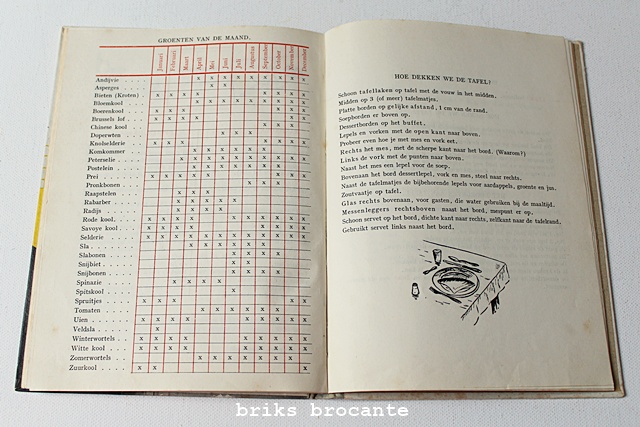 GROENTEN VAN DE MAAND.
Januari Februari Maart April Mei Juni Juli Augustus September October November December
Andijvie
Asperges
Bieten (Kroten)
Bloemkool
Boerenkool
Brussels lof
Chinese kool
Doperwten
Knolselderie
Komkommer
Peterselie
Postelein
Prei
Pronkbonen
Raapstelen
Rabarber
Radijs
Rode kool
Savoye kool
Selderie
Sla
Slabonen
Snijbiet
Snijbonen
Spinazie
Spitskool
Spruitjes
Tomaten
Uien
Veldsla
Winterwortels
Witte kool
Zomerwortels
Zuurkool
HOE DEKKEN WE DE TAFEL?
Schoon tafellaken op tafel met de vouw in het midden.
Midden op 3 (of meer) tafelmatjes.
Platte borden op gelijke afstand, 1 cm van de rand.
Soepborden er boven op.
Dessertborden op het buffet.
Lepels en vorken met de open kant naar boven.
Probeer even hoe je met mes en vork eet.
Rechts het mes, met de scherpe kant naar het bord. (Waarom?)
Links de vork met de punten naar boven.
Naast het mes een lepel voor de soep.
Bovenaan het bord dessertlepel, vork en mes, steel naar rechts.
Naast de tafelmatjes de bijbehorende lepels voor aardappels, groente en jus.
Zoutvaatje op tafel.
Glas rechts bovenaan, voor gasten, die water gebruiken bij de maaltijd.
Messenleggers rechtsboven naast het bord, mespunt er op.
Schoon servet op het bord, dichte kant naar rechts, zelfkant naar de tafelrand.
Gebruikt servet links naast het bord.
briks brocante